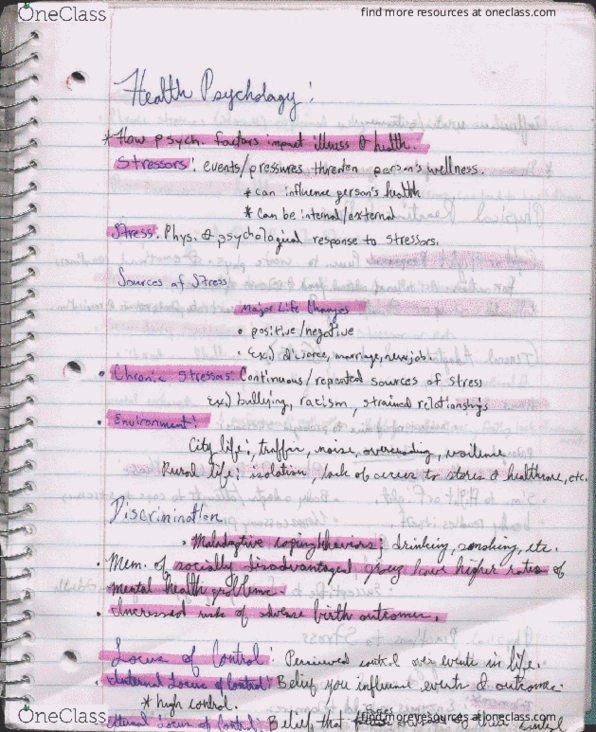 OneClass
find more resources at oneclass.com
Health Psychology:
* How psych. factors impact illness & health.
Stressors: events/pressures threaten person's wellness.
* can influence person's health
* Can be internal/external
Stress: Phys. & psychological response to stressors.
Sources of Stress
Major Life Changes
• positive/negative
• Ex.) divorce, marriage, new job.
• Chronic Stressors: Continuous/repeated sources of stress
Ex.) bullying, racism, strained relationships
• Environment:
City life: traffic, noise, overcrowding,
Rural life: isolation, lack of access to stores & healthcare, etc.
Discrimination
• Maladaptive coping behaviors; drinking, smoking, etc.
• Mem. of socially disadvantaged group have higher rates of
mental health problems.
• Increased risk of adverse birth outcomes.
Locus of Control: Perceived control over events in life.
• Internal Locus of Control: Belief you influence events & outcome.
* high control.
Locus of Control: Belief that
OneClass
find more resources at oneclass.com